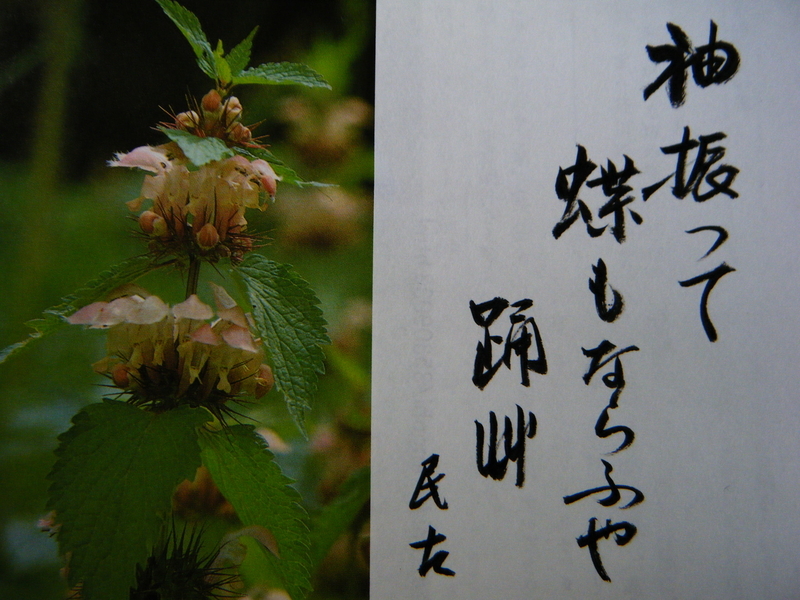 袖振って
蝶もならふや
踊艸
民古